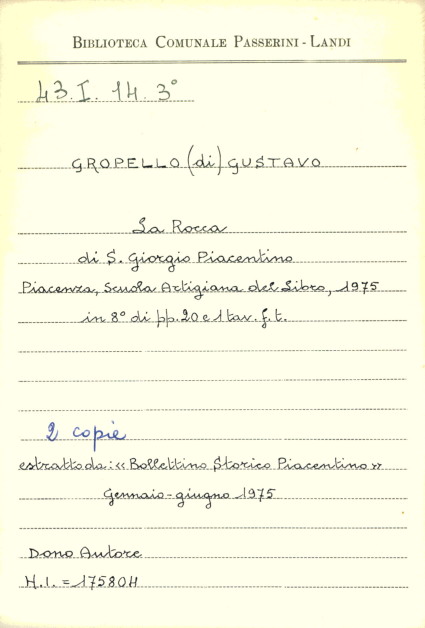 BIBLIOTECA COMUNALE PASSERINI - LANDI
43.I.14.3°
GROPELLO (di) GUSTAVO
La Rocca
di S. Giorgio Piacentino
Piacenza, Scuola Artigiana del Libro, 1975
in 8° di pp. 20 e 1 tav. f. t.
2 copie
estratto da: « Bollettino Storico Piacentino »
Gennaio - giugno 1975
Dono Autore
H.I. = 175804